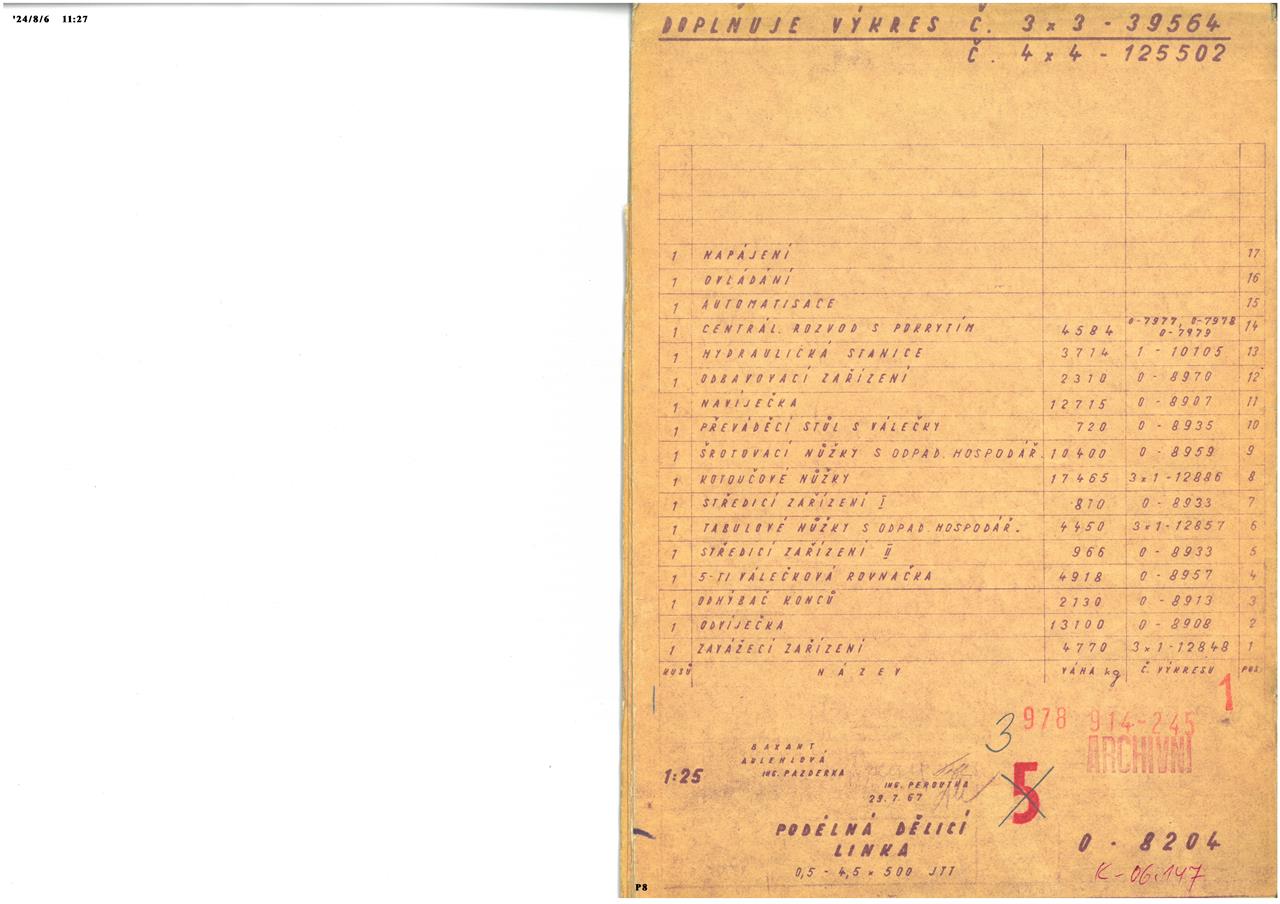 '24/8/6 11:27
DOPLŇUJE VÝKRES Č. 3x3 - 39564
Č. 4x4 - 125502
1 NAPÁJENÍ 17
1 OVLÁDÁNÍ 16
1 AUTOMATISACE 15
1 CENTRÁL. ROZVOD S POKRYTÍM 4584 0-7977, 0-7978 0-7979 14
1 HYDRAULICKÁ STANICE 3714 1 - 10105 13
1 ODBAVOVACÍ ZAŘÍZENÍ 2310 0 - 8970 12
1 NAVÍJEČKA 12715 0 - 8907 11
1 PŘEVÁDĚCÍ STŮL S VÁLEČKY 720 0 - 8935 10
1 ŠROTOVACÍ NŮŽKY S ODPAD. HOSPODÁŘ. 10400 0 - 8959 9
1 KOTOUČOVÉ NŮŽKY 17465 3x1-12886 8
1 STŘEDICÍ ZAŘÍZENÍ I 810 0 - 8933 7
1 TABULOVÉ NŮŽKY S ODPAD. HOSPODÁŘ. 4450 3x1-12857 6
1 STŘEDICÍ ZAŘÍZENÍ II 966 0 - 8933 5
1 5-TI VÁLEČKOVÁ ROVNAČKA 4918 0 - 8957 4
1 ODHÝBAČ KONCŮ 2130 0 - 8913 3
1 ODVÍJEČKA 13100 0 - 8908 2
1 ZAVÁŽECÍ ZAŘÍZENÍ 4770 3x1-12848 1
KUSŮ NÁZEV VÁHA kg Č. VÝKRESU POS.
1
3 978 914-245
ARCHIVNÍ
BAXANT,
AULEHLOVÁ
ING. PAZDERKA
1:25
ING. PEROUTKA
29.7.67
5
PODÉLNÁ DĚLICÍ
LINKA
0 - 8204
0,5 - 4,5 x 500 JTT
K-06.147
P8